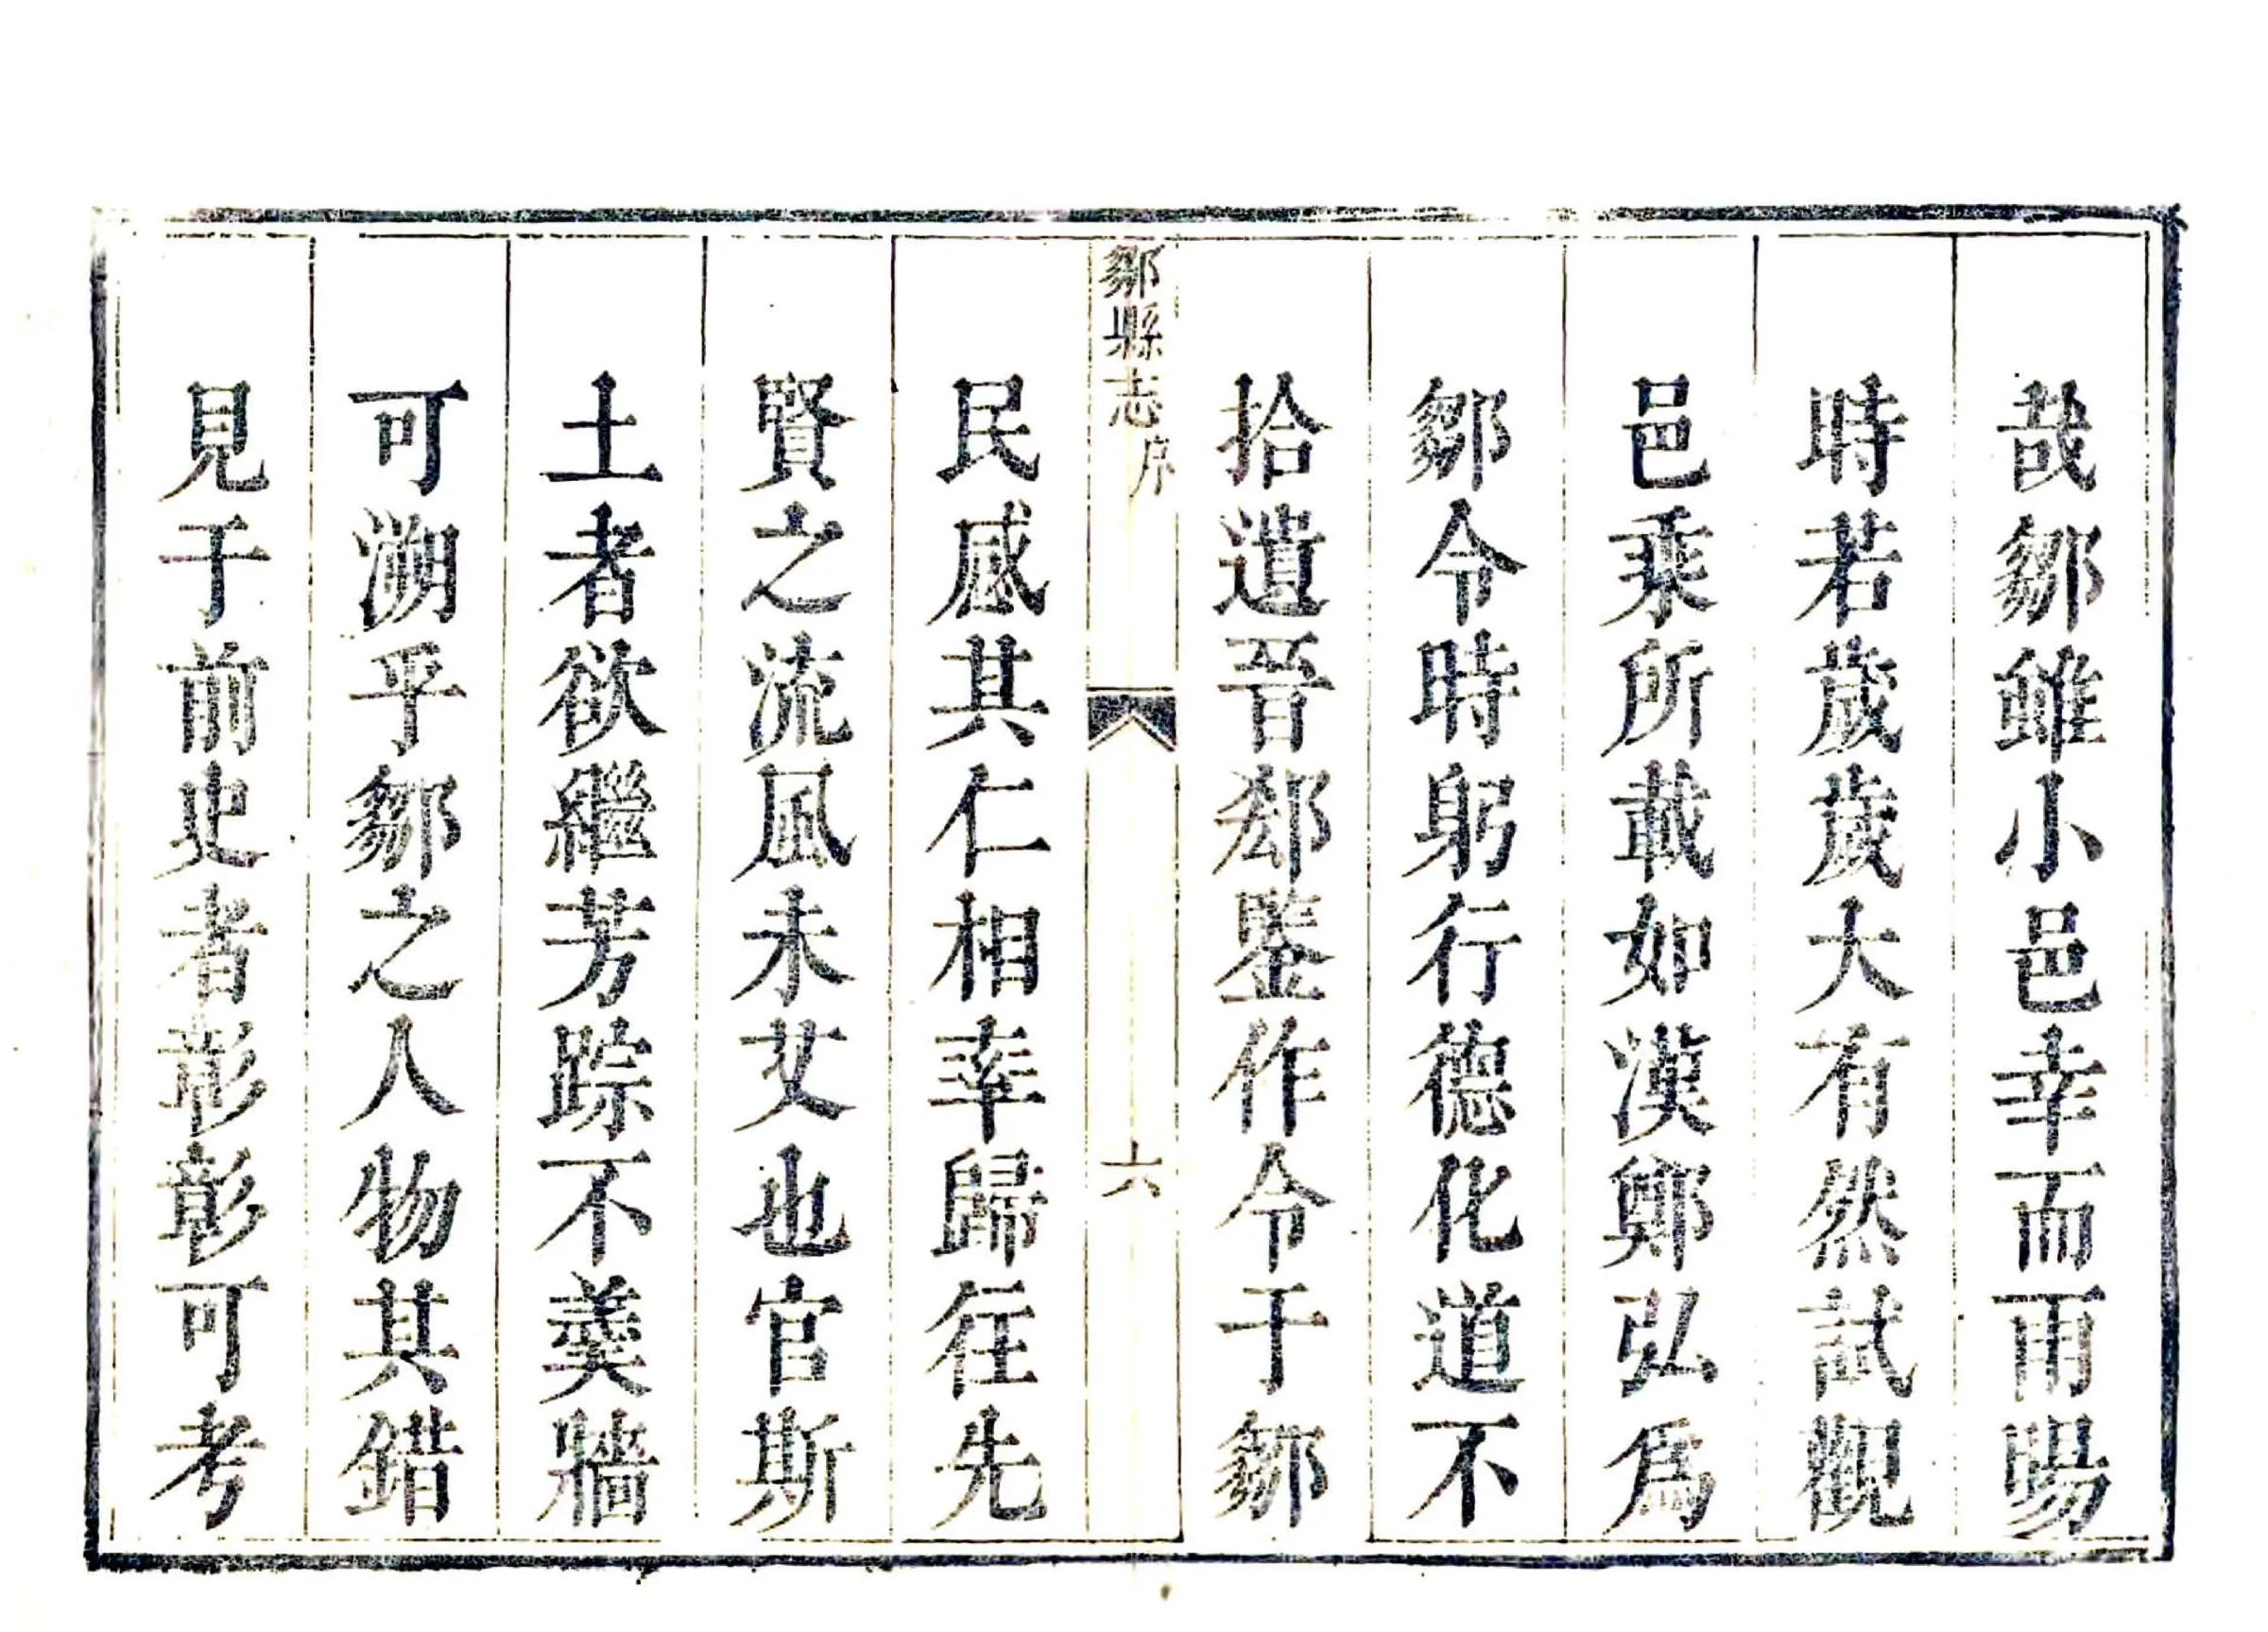 哉鄒雖小邑幸而雨暘
時若歲歲大有然試觀
邑乘所載如漢鄭弘爲
鄒令時躬行德化道不
拾遺晉郄鑒作令于鄒
鄒縣志序
六
民感其仁相率歸往先
賢之流風未艾也官斯
土者欲繼芳踪不羹牆
可溯乎鄒之人物其錯
見于前史者彰彰可考